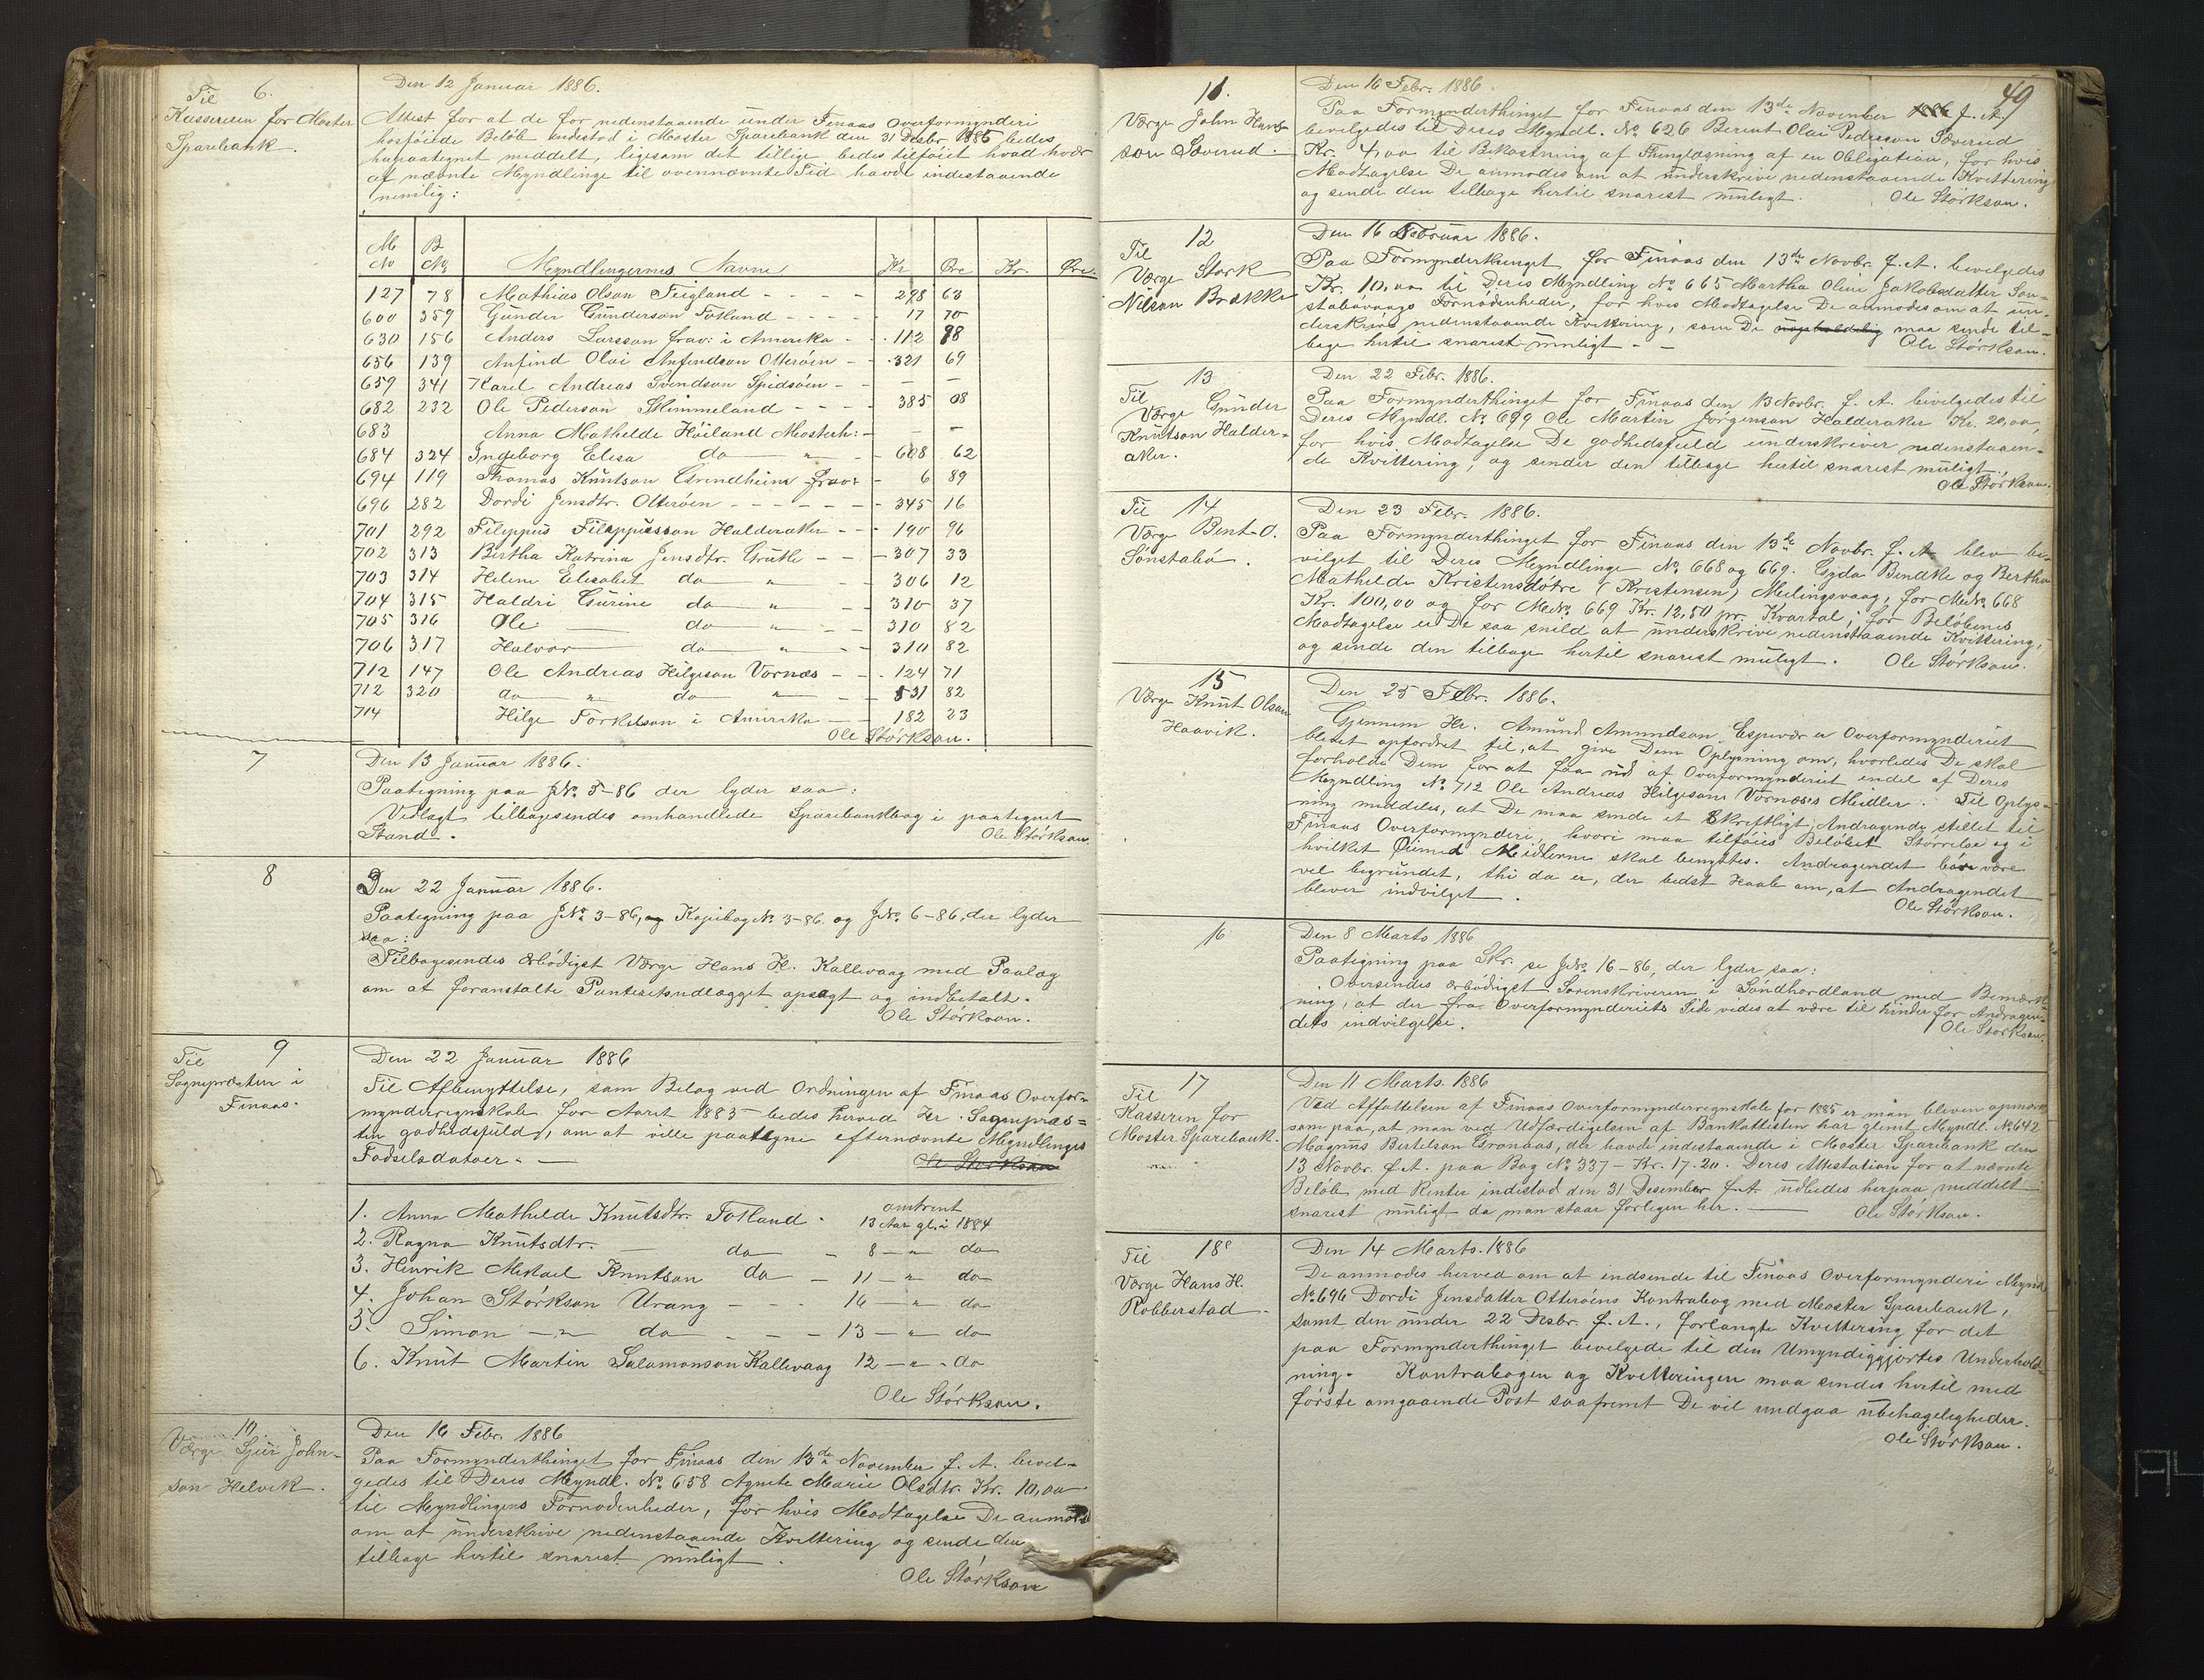 Til 6.
Kassereren for Moster
Sparebank.
Den 12 Januar 1886.
Attest for at de for nedenstaaende under Finaas Overformynderi
hosföiede Belöb indestod i Moster Sparebank den 31 Desbr. 1885 bedes
herpaategnet meddelt, ligesom det tillige bedes tilföiet hvad hver
af nævnte Myndlinge til ovennævnte Tid havde indestaaende
nemlig:
M No | B No | Myndlingernes Navne | Kr | Øre | Kr. | Øre.
127 78 Mathias Olson Teigland - - - - 298 63
600 359 Gunder Gunderson Totland - - - - 17 70
630 156 Anders Larsson frav: i Amerika - - 112 88
656 139 Anfind Olai Anfindson Otteröen - - 321 69
659 341 Karel Andreas Svendson Spidsöen - - — —
682 232 Ole Pederson Skimmeland - - - - 385 08
683 Anna Mathelde Höiland Mosterh: - — —
684 324 Ingeborg Elisa do — " - 608 62
694 119 Thomas Knutson Grindheim frav: - 6 89
696 282 Dordi Jensdtr. Otteröen - - - - - - 345 16
701 292 Filippus Filippusson Halderaker - - - 190 96
702 313 Bertha Katrina Jensdtr. Grutle - - - 307 33
703 314 Helene Elisabet do — " - - 306 12
704 315 Haldri Gurine do — " - - 310 37
705 316 Ole — do — " - - 310 82
706 317 Halvor — do — " - - 310 82
712 147 Ole Andreas Helgeson Vornæs - - - 124 71
712 320 do — " do " - - 531 82
714 Helge Torkelson i Amerika - - 182 23
Ole Störkson.
7
Den 13 Januar 1886.
Paategning paa JNo. 5-86 der lyder saa:
Vedlagt tilbagesendes omhandlede Sparebankbog i paategnet
Stand.
Ole Störkson
8
Den 22 Januar 1886.
Paategning paa JNo. 3-86, og Kopibog No. 3-86. og JNo. 6-86, der lyder
saa:
Tilbagesendes ærbödigst Værge Hans H. Kallevaag med Paalæg
om at foranstalte Panteretsudlægget opsagt og indbetalt.
Ole Störkson.
Til 9
Sognepræsten i
Finaas.
Den 22 Januar 1886
Til Afbenyttelse, som Bilag ved Ordningen af Finaas Overfor-
mynderregnskab for Aaret 1885 bedes herved Hr. Sognepræs=
ten godhedsfuld, om at ville paategne efternævnte Myndlinges
Fødselsdatoer. —
Ole Störkson
1. Anna Mathilde Knutsdtr. Totland. omtrent 13 Aar gl. i 1884
2. Ragna Knutsdtr. — do — 8 — " do
3. Henrik Mikael Knutson do — 11 — " do
4. Johan Störkson Urang - - - 16 — " do
5. Simon — " — do — - - 13 — " do
6. Knut Martin Salamonson Kallevaag 12 — " - do
Ole Störkson.
10
Værge Sjur John-
son Helvik.
Den 16 Febr. 1886
Paa Formynderthinget for Finaas den 13de November f. A. bevil-
gedes til Deres Myndl. No. 658 Agnete Marie Olsdtr. Kr. 10,00
til Myndlingens Fornödenheder, for hvis Modtagelse De anmodes
om at underskrive nedenstaaende Kvittering og sende den
tilbage hertil snarest muligt.
Ole Störkson
49
11.
Værge John Hans-
son Sæverud.
Den 16 Febr. 1886
Paa Formynderthinget for Finaas den 13de November 1886 f. A.
bevelgedes til Deres Myndl. No. 626 Berent Olai Pederson Sæverud
Kr. 4,00 til Bekostning af Thinglæsning af en Obligation, for hvis
Modtagelse De anmodes om at underskrive nedenstaaende Kvittering
og sende den tilbage hertil snarest muligt.
Ole Störkson.
12
Til
Værge Störk
Nilson Brække
Den 16 Februar 1886.
Paa Formynderthinget for Finaas den 13de Novbr. f. A. bevelgedes
Kr. 10,00 til Deres Myndling No. 665 Martha Oline Jakobsdatter Sön-
stabövaags Fornödenheder, for hvis Modtagelse De anmodes om at un-
derskrive nedenstaaende Kvittering, som De maa sende til-
bage hertil snarest muligt - -
Ole Störkson.
13
Til
Værge Gunder
Knutson Halder-
aker.
Den 22 Febr. 1886.
Paa Formynderthinget for Finaas den 13 Novbr. f. A. bevilgedes til
Deres Myndl. No. 699 Ole Martin Jörgenson Halderaker Kr. 20,00,
for hvis Modtagelse De godhedsfuld underskriver nedenstaaen-
de Kvittering, og sender den tilbage hertil snarest muligt.
Ole Störkson.
Til 14
Værge Bent O.
Sönstabö.
Den 23 Febr. 1886.
Paa Formynderthinget for Finaas den 13de Novbr. f. A. blev be-
vilget til Deres Myndlinge No. 668 og 669. Gyda Bendke og Bertha
Mathilde Kristensdøtre (Kristensen) Meilingsvaag, for MNo. 668
Kr. 100,00 og for MNo. 669 Kr. 12,50 pr. Kvartal; for Beløbenes
Modtagelse er De saa snild at underskrive nedenstaaende Kvittering,
og sende den tilbage hertil snarest muligt.
Ole Störkson.
15
Værge Knut Olson
Haavik.
Den 25 Febr. 1886.
Gjennem Hr. Amund Amundson Espevær er Overformynderiet
blevet opfordret til, at give Dem Oplysning om, hvorledes De skal
forholde Dem for at faa ud af Overformynderiet endel af Deres
Myndling No. 712 Ole Andreas Helgesons Vornæses Midler. Til Oplys-
ning meddeles, at De maa sende et Skriftligt Andragende stillet til
Finaas Overformynderi, hvori maa tilföies Belöbet Störrelse og i
hvilket Øiemed Midlerne skal benyttes. Andragendet bör være
vel begrundet, thi da er, der bedst Haab om, at Andragendet
bliver indvilget.
Ole Störkson.
16
Den 8 Marts 1886
Paategning paa Skr. se JNo. 16-86, der lyder saa:
Oversendes ærbödigst Sorenskriveren i Söndhordland med Bemærk-
ning, at der fra Overformynderiets Side vides at være til hinder for Andragen-
dets indvilgelse.
Ole Störkson.
17
Til
Kasseren for
Moster Sparebank.
Den 11 Marts. 1886
Ved Affattelsen af Finaas Overformynderregnskab for 1885 er man bleven opmærk-
som paa, at man ved Udfærdigelsen af Bankattesten har glemt Myndl. No. 642
Magnus Bertelson Grønaas, der havde indestaaende i Moster Sparebank den
13 Novbr. f. A. paa Bog No. 337 - Kr. 17.20. Deres Attestation for at nævnte
Belöb med Renter indestod den 31 Desember f. A. udbedes herpaa meddelt
snarest muligt da man staar forlegen her. —
Ole Störkson.
Til 18
Værge Hans H.
Robberstad.
Den 14 Marts. 1886
De anmodes herved om at indsende til Finaas Overformynderi Mynd.
No. 696 Dordi Jensdatter Otteröens Kontrabog med Moster Sparebank,
samt den under 22 Desbr. f. A., forlangte Kvittering for det
paa Formynderthinget bevelgede til den Umyndiggjortes Underhold-
ning. Kontrabogen og Kvitteringen maa sendes hertil med
förste omgaaende Post saafremt De vil undgaa ubehageligheder.
Ole Störkson.